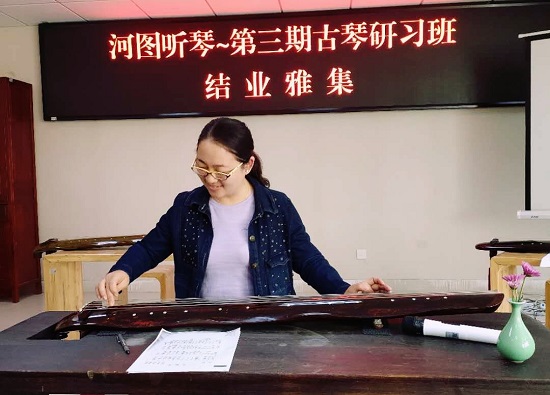 河图听琴~第三期古琴研习班
结业雅集